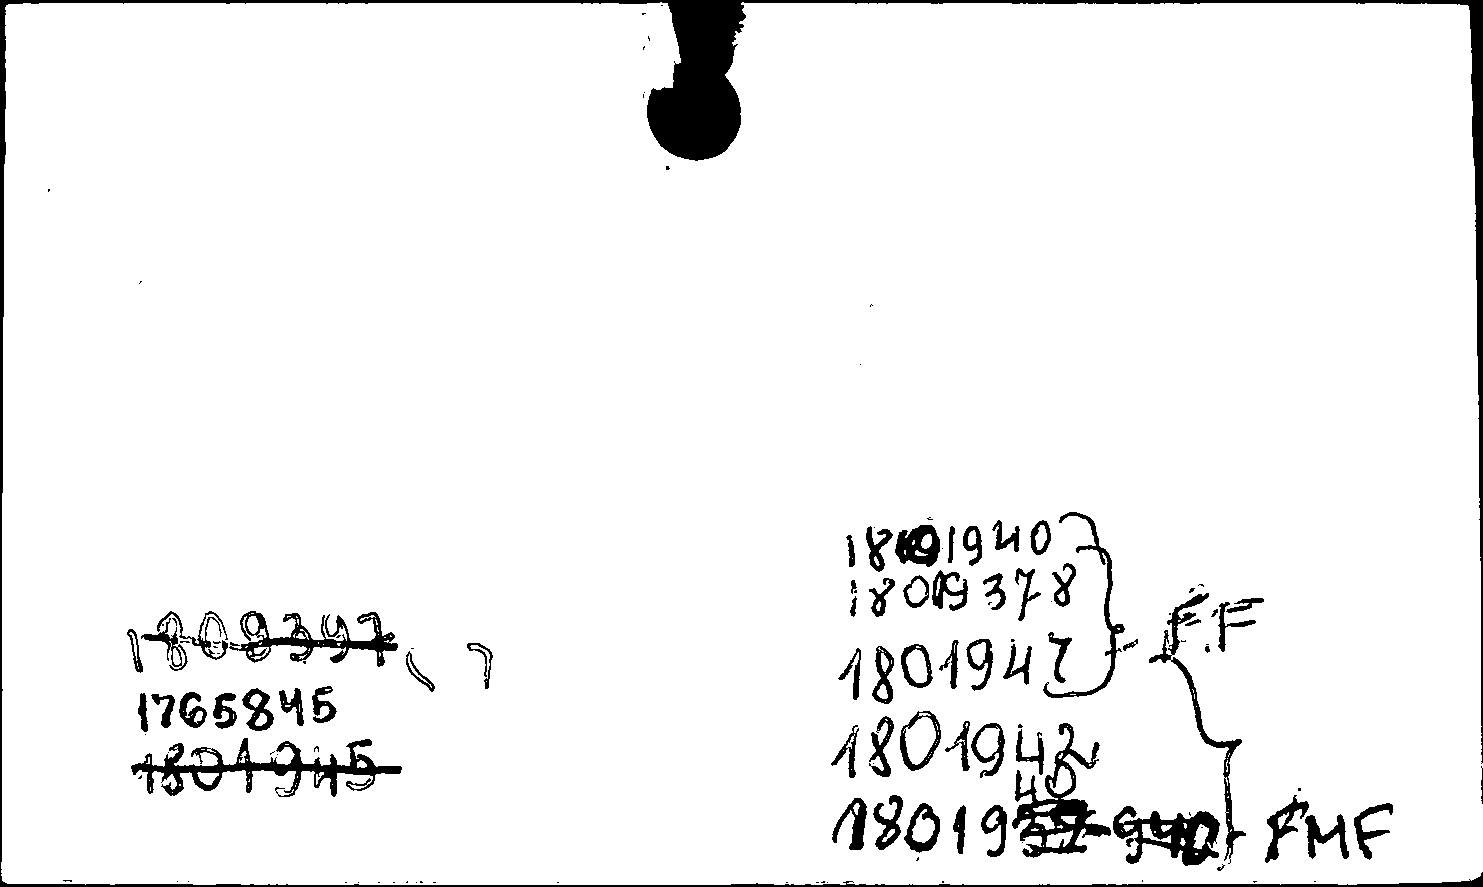 1809397
1765845
1801945
1801940
18019378
1801947
FF
1801942
40
18019
FMF